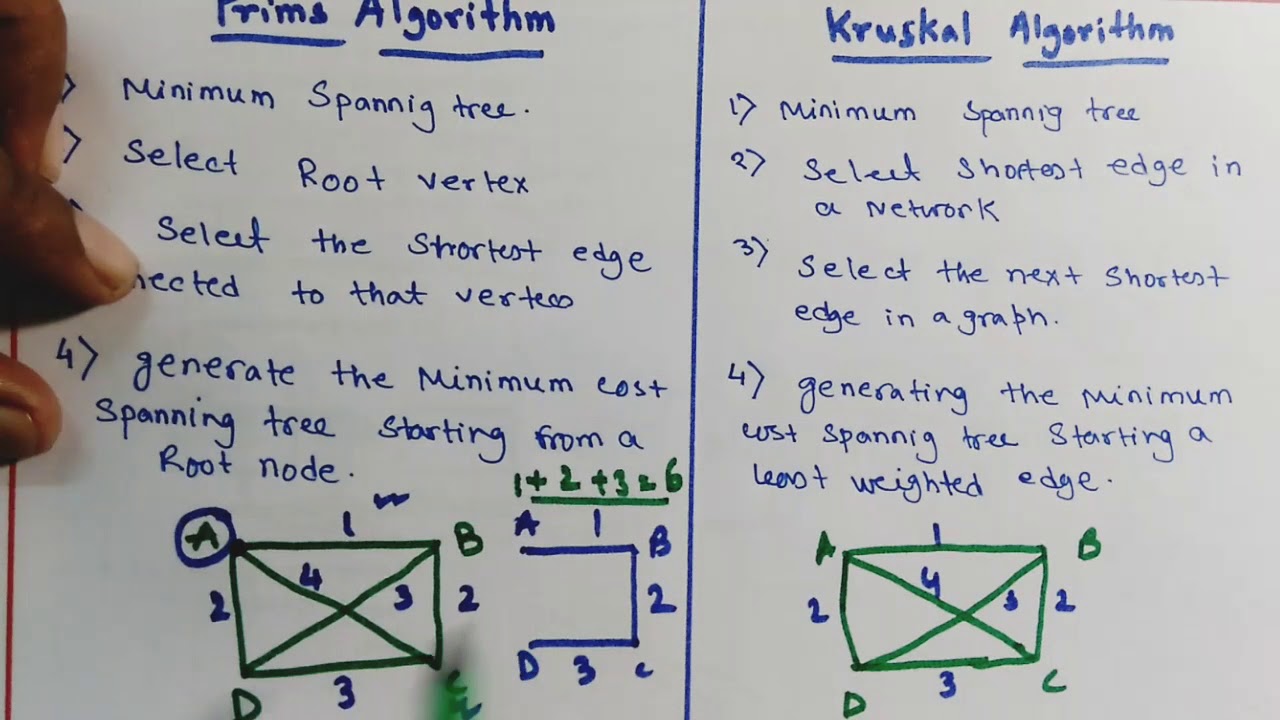 Prims Algorithm
Minimum Spannig tree.
Select Root vertex
Select the Shortest edge
nected to that vertex
4) generate the Minimum cost
Spanning tree Starting from a
Root node.
1+2+3=6
A 1 B
4 3
2 2
D 3 C
A 1 B
2
D 3 C
Kruskal Algorithm
1) Minimum Spannig tree
2) Select Shortest edge in
a Network
3) Select the next Shortest
edge in a graph.
4) generating the Minimum
cost Spannig tree Starting a
least weighted edge.
A 1 B
4 3
2 2
D 3 C